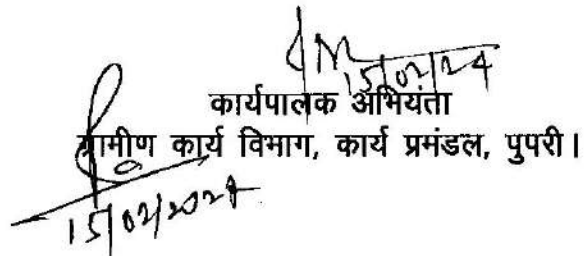 15/02/24
कार्यपालक अभियंता
ग्रामीण कार्य विभाग, कार्य प्रमंडल, पुपरी।
15/02/2024